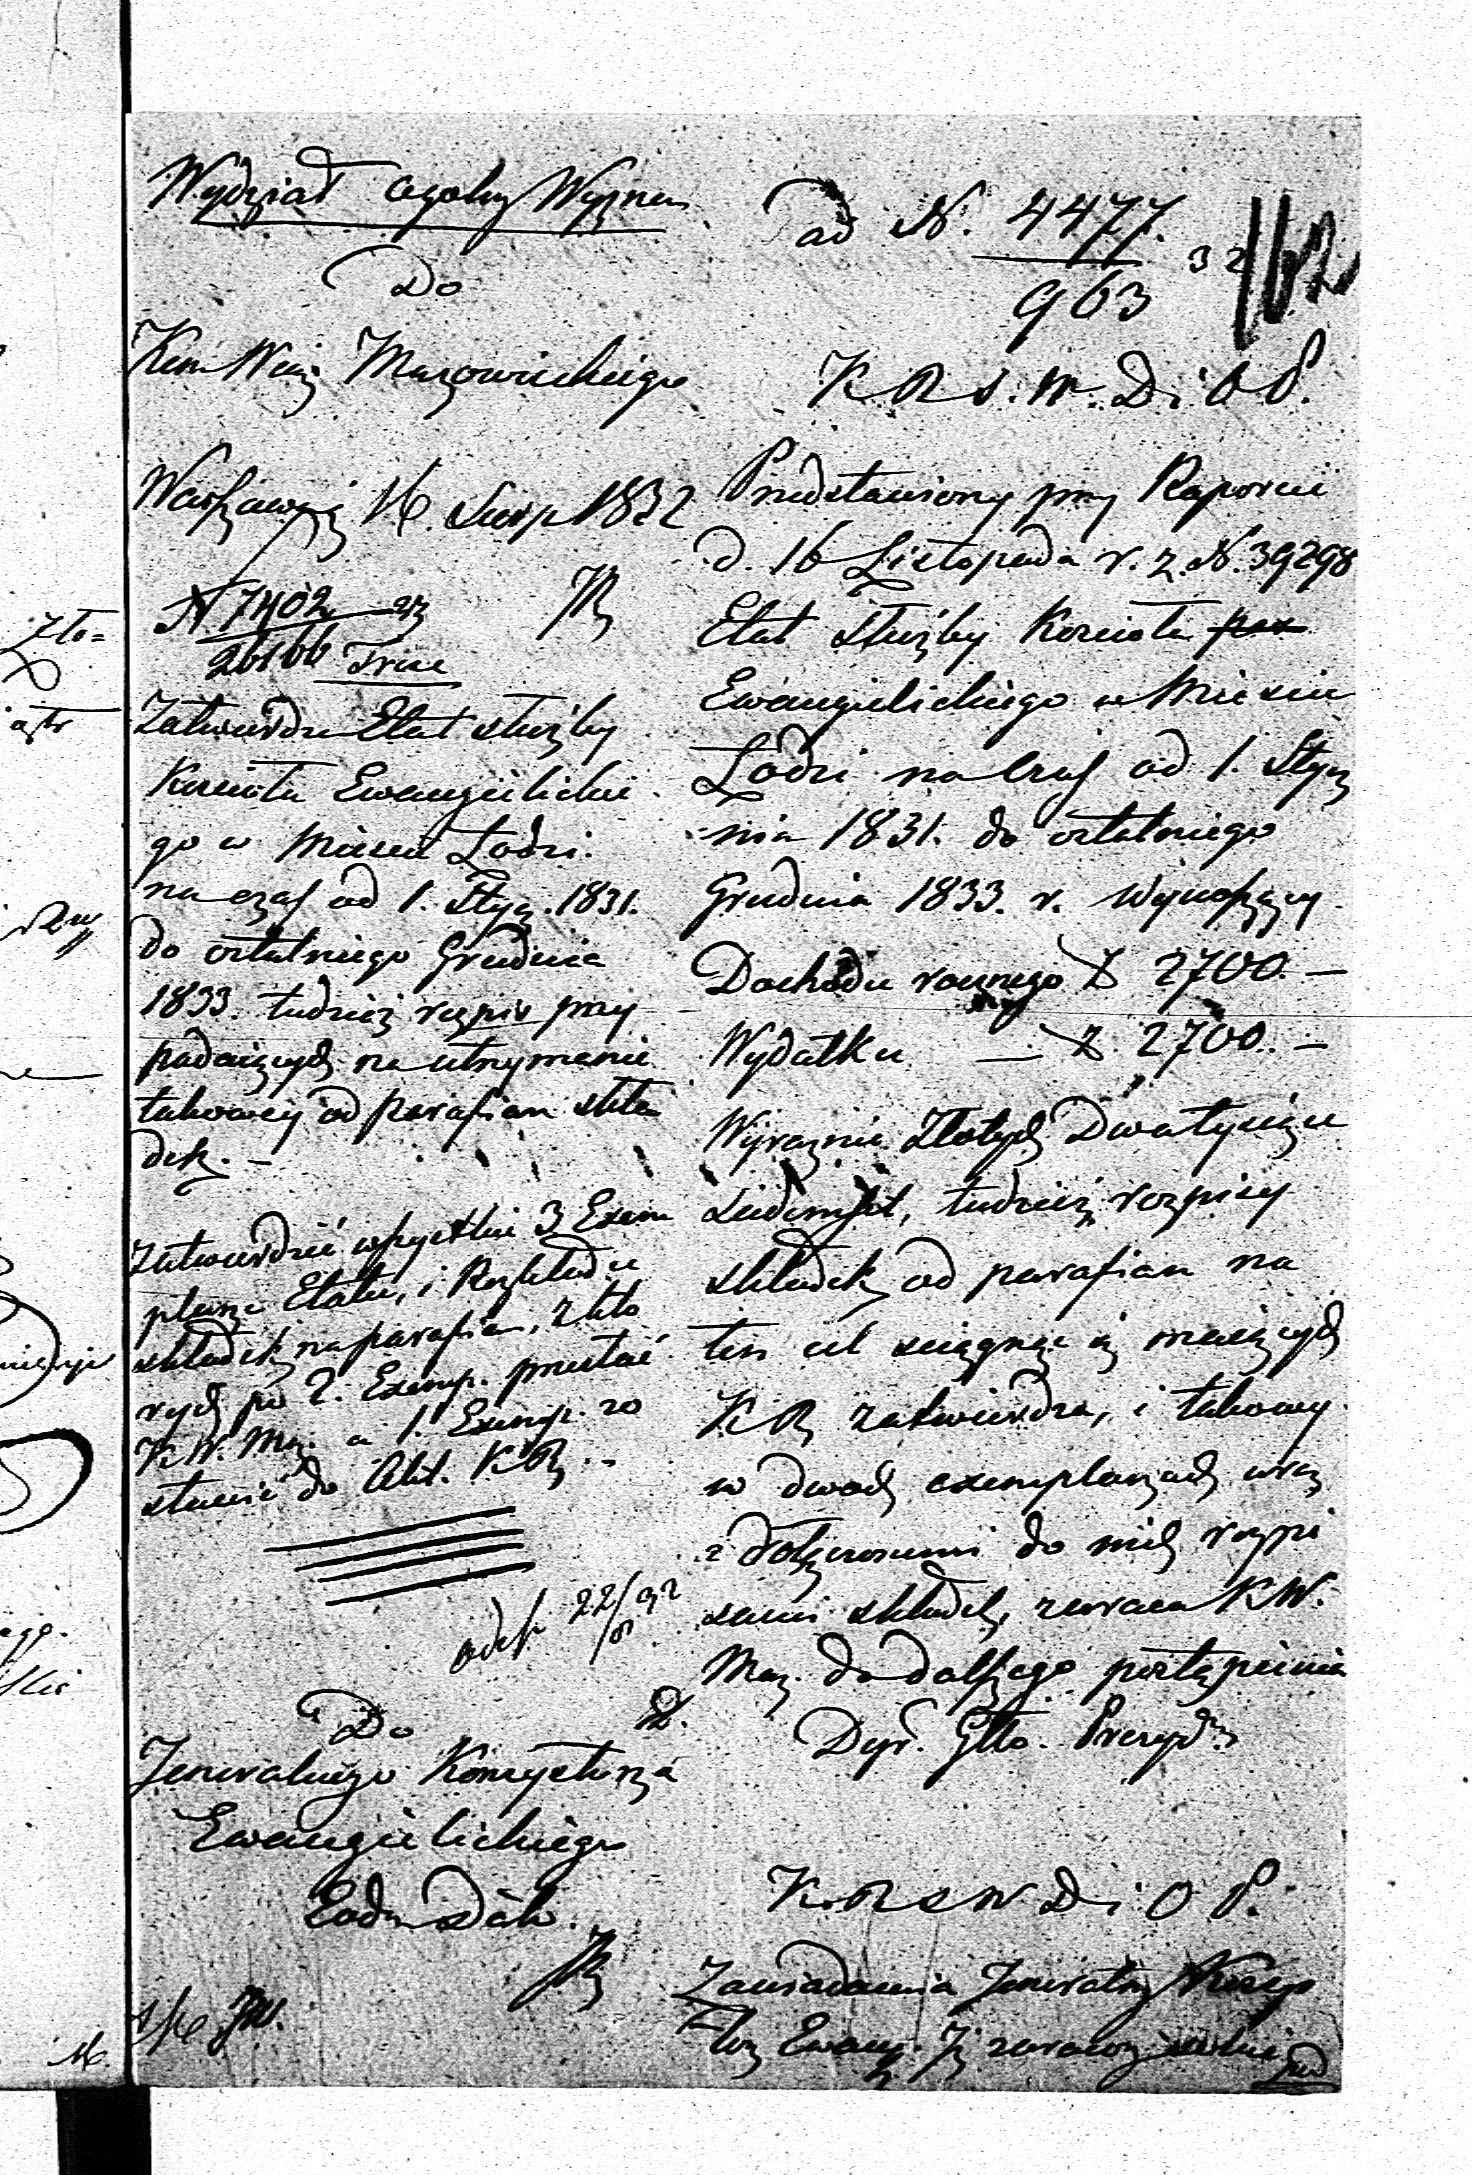 Wydział ogólny Wyznań
Do
Kom Woj: Mazowieckiego
Warszawa 16. Sierp 1832
N 7402
26166 Treść
Zatwierdza Etat służby
Kościoła Ewangielickie
go w Mieście Łodzi.
na czas od 1. Stycz. 1831.
do ostatniego Grudnia
1833. tudzież rozpis przy
padaiących na utrzymanie
takowey od parafian skła
dek. –
Zatwierdzić wszystkie 3 Exem
plarze Etatu, i Rozkładu
składek na parafian, z któ
rych po 2. Exemp. przesłać
K W. Maz. a 1. Exemp. zo
stawić do Akt. KR. –
22/8 32
Do
Jeneralnego Konsystorza
Ewangielickiego
Eod. Dato.
ad N. 4477.
963 32
162
K R S. W. D. i O P.
Przedstawiony przy Raporcie
d. 16 Listopada r. z. N. 39298
Etat służby Kościoła
Ewangielickiego w Mieście
Łodzi na czas od 1. Stycz
nia 1831. do ostatniego
Grudnia 1833. r. wynoszący
Dochodu rocznego Z 2700. –
Wydatku — Z. 2700. –
Wyraźnie Złotych Dwa tysiące
siedemset, tudzież rozpisy
składek od parafian na
ten cel ściągnąć się maiących
KR zatwierdza, i takowy
w dwóch exemplarzach wraz
z dołączonemi do nich rozpi
sami składek, zwraca KW.
Maz. do dalszego postąpienia
Dyr. Głto. Prezyd.
K. R S W D i O P.
Zawiadamia Jeneralny Konsys
torz Ewang. Iż zarazem